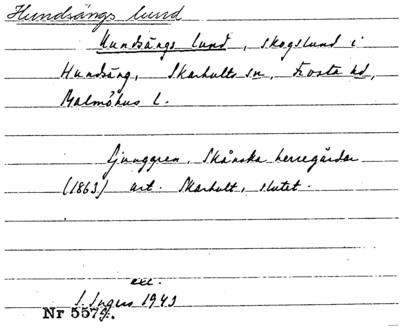 Hundsängs lund
Hundsängs lund, skogslund i
Hundsäng, Skarhults sn, Frosta hd,
Malmöhus l.
Ljunggren, Skånska herregårdar
(1863) art. Skarhult, slutet.
exc.
S. Ingers 1943
Nr 5579.